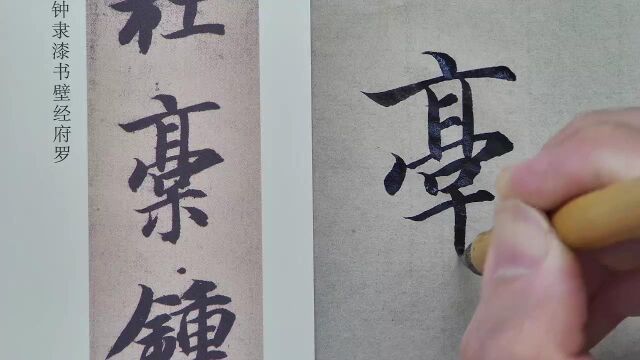 钟隶漆书壁经府罗
杜槀鍾